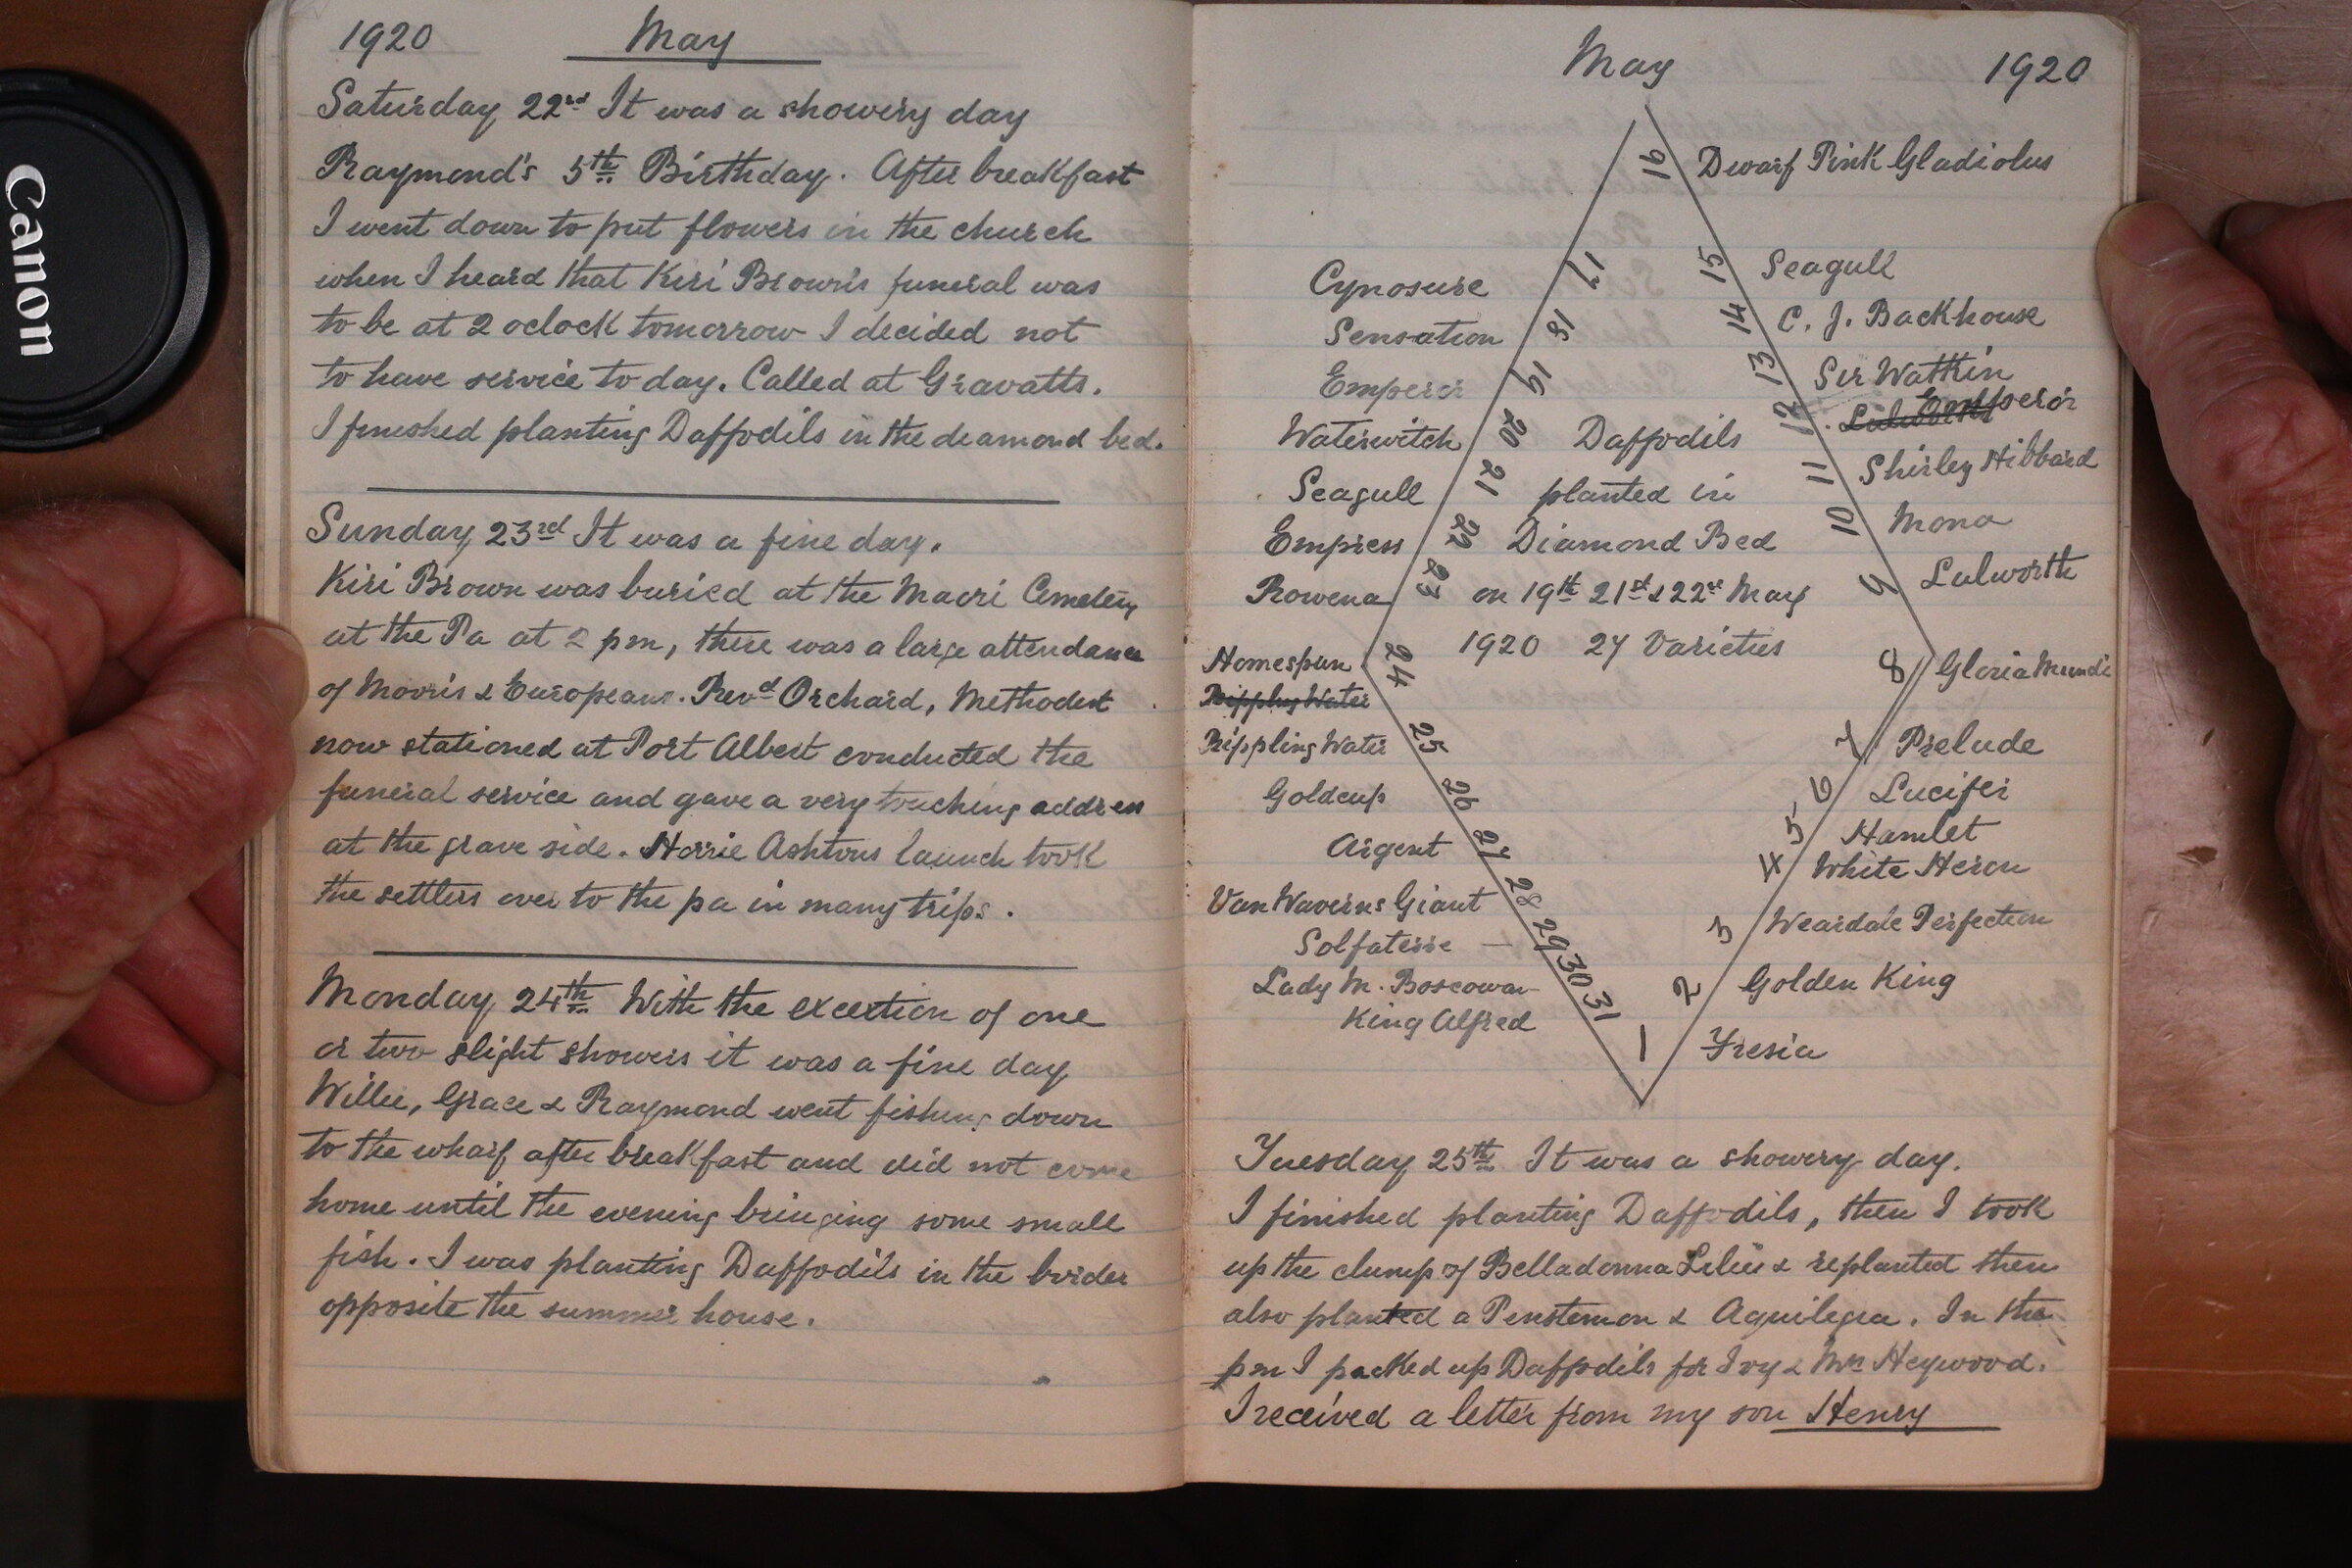 Canon
1920 May
Saturday 22nd It was a showery day
Raymond's 5th Birthday. After breakfast
I went down to put flowers in the church
when I heard that Kiri Brown's funeral was
to be at 2 oclock tomorrow I decided not
to have service to day. Called at Gravatts.
I finished planting Daffodils in the deamond bed.
Sunday 23rd It was a fine day.
Kiri Brown was buried at the Maori Cemetery
at the Pa at 2 pm, there was a large attendance
of Mooris & Europeans. Revd Orchard, Methodist
now stationed at Port Albert conducted the
funeral service and gave a very touching address
at the grave side. Horrie Ashtons launch took
the settlers over to the pa in many trips.
Monday 24th With the excextion of one
or two slight showers it was a fine day
Willie, Grace & Raymond went fishing down
to the wharf after breakfast and did not come
home until the evening bringing some small
fish. I was planting Daffodils in the border
opposite the summer house.
May 1920
16 Dwarf Pink Gladiolus
15 Seagull
14 C. J. Backhouse
13 Sir Watkin
12 Emperor
11 Shirley Hibbard
10 Mona
9 Lulworth
8 Gloria Mundi
7 Prelude
6 Lucifer
5 Hamlet
4 White Heron
3 Weardale Perfection
2 Golden King
1 Fresia
Cynosure 17
Sensation 18
Emperor 19
Waterwitch 20
Seagull 21
Empress 22
Rowena 23
Homespun 24
Rippling Water
Rippling Water 25
Goldcup 26
Argent 27
Van Waverns Giant 28
Solfaterre — 29
Lady M. Boscowan 30
King Alfred 31
Daffodils
planted in
Diamond Bed
on 19th 21st & 22nd May
1920 27 Varieties
Tuesday 25th It was a showery day.
I finished planting Daffodils, then I took
up the clump of Belladonna Lilies & replanted them
also planted a Penstemon & Aquilegia. In the
pm I packed up Daffodils for Ivy & Mrs Heywood.
I received a letter from my son Henry